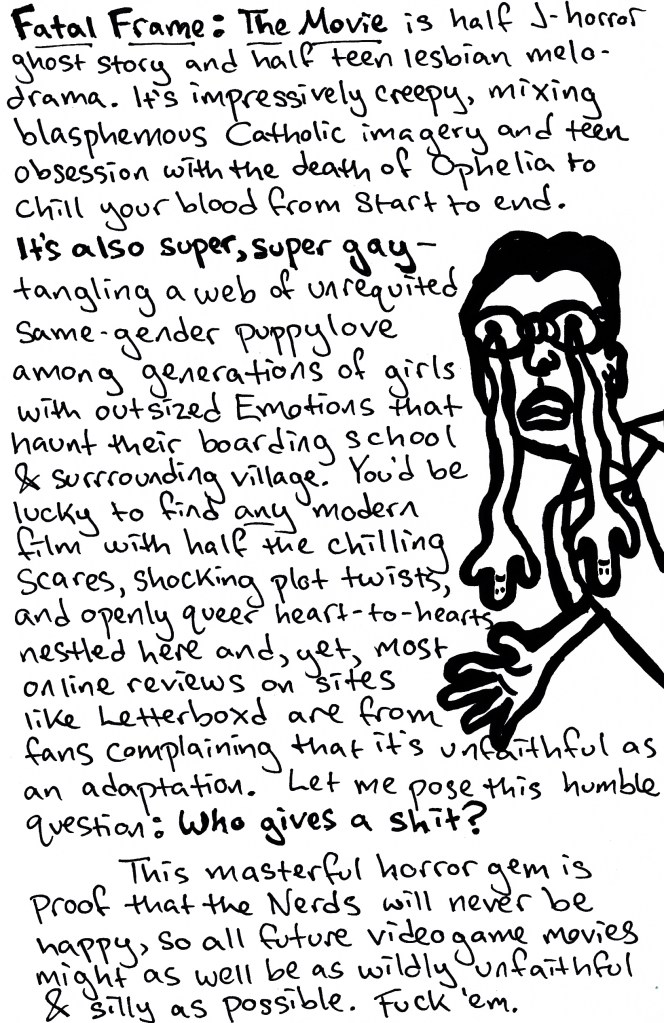 Fatal Frame: The Movie is half J-horror
ghost story and half teen lesbian melo-
drama. It's impressively creepy, mixing
blasphemous Catholic imagery and teen
obsession with the death of Ophelia to
chill your blood from start to end.
It's also super, super gay—
tangling a web of unrequited
same-gender puppylove
among generations of girls
with outsized Emotions that
haunt their boarding school
& surrrounding village. You'd be
lucky to find any modern
film with half the chilling
scares, shocking plot twists,
and openly queer heart-to-hearts
nestled here and, yet, most
online reviews on sites
like Letterboxd are from
fans complaining that it's unfaithful as
an adaptation. Let me pose this humble
question: Who gives a shit?
This masterful horror gem is
Proof that the Nerds will never be
happy, so all future videogame movies
might as well be as wildly unfaithful
& silly as possible. Fuck 'em.